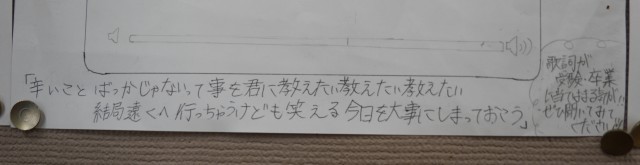 「辛いことばっかじゃないって事を君に教えたい教えたい教えたい
結局遠くへ行っちゃうけども笑える今日を大事にしまっておこう」
歌詞が
受験・卒業
に当てはまる所が
ぜひ聞いてみて
ください